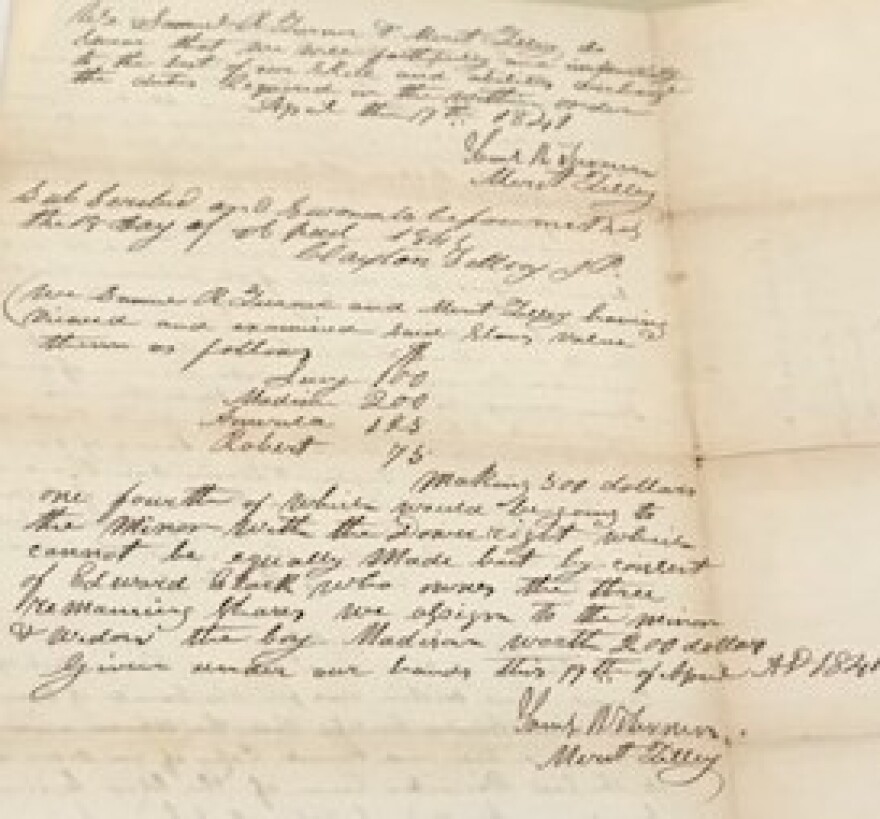 We Samuel R Turner & Merit Tilley do
swear that we will faithfully and impartially
to the best of our skill and abilities discharge
the duties Required in the within order
April the 17th 1841
Saml R Turner
Merit Tilley
Subscribed and Sworn to before me this
the 17 day of April
Clayton Tilley JP.
We Samuel R. Turner and Merit Tilley having
viewed and examined said Slaves value
them as follows
Lucy 100
Madison 200
America 125
Robert 75
making 500 dollars
one fourth of which would be going to
the Minor with the Dower right which
cannot be equally Made but by consent
of Edward Clark who owns the three
remaining Shares we assign to the minor
& widow the boy Madison worth 200 dollars
Given under our hands this 17th of April AD 1841
Saml R Turner
Merit Tilley